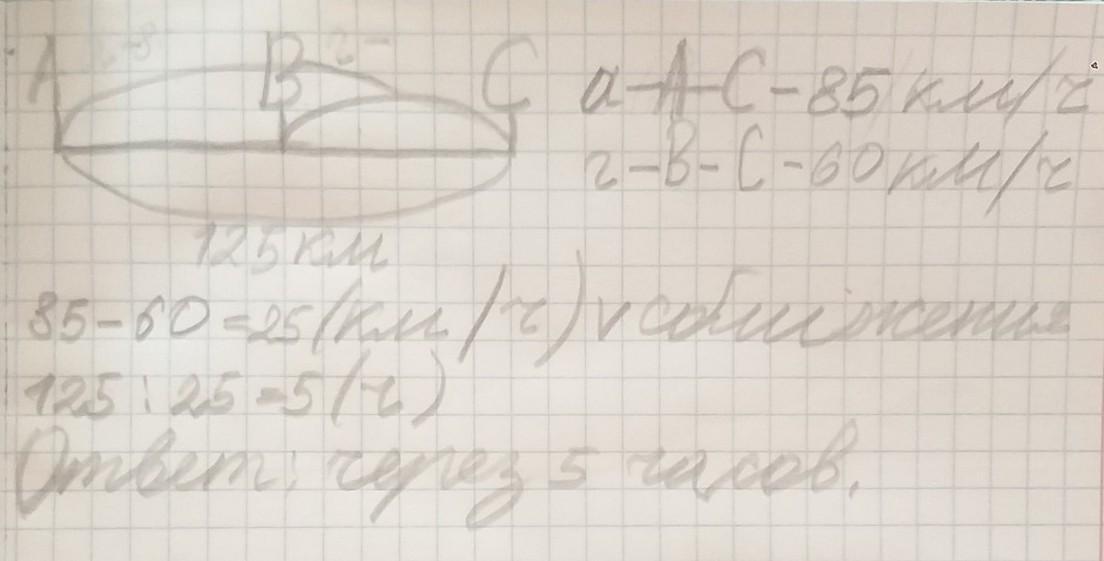 A B C a-A-C-85 км/ч
г-В-С-60 км/ч
125 км
85-60=25(км/ч) v сближения
125:25=5(ч)
Ответ: через 5 часов.